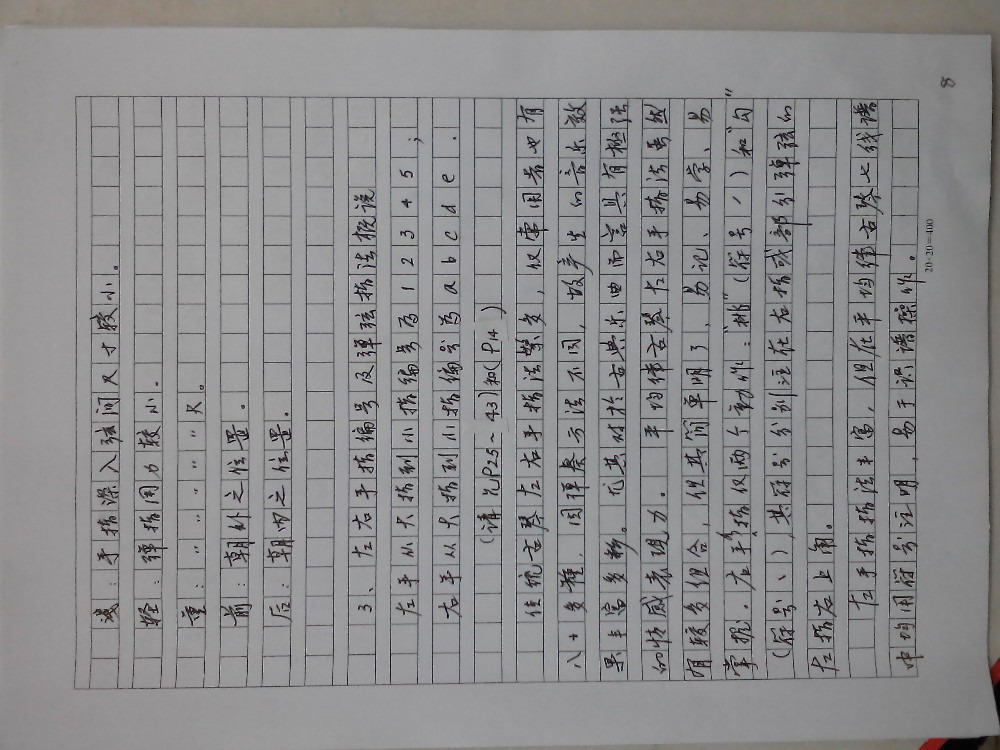 8
浅：手指深入弦间尺寸较小。
轻：弹指用力较小．
重：〃 〃 〃 〃 大。
前：朝外之位置。
后：朝内之位置。
3、左右手指编号及弹弦指法概说
左手从大指到小指编号为 1 2 3 4 5；
右手从大指到小指编号为 a b c d e．
(请见P25～43)和(P14)
传统古琴左右手指法繁多，仅常用者也有
八十多种，因弹奏方法不同，故产生的音乐效
果丰富多彩。尤其对於古典乐曲而言具有极强
的情感表现力。平均律古琴左右手指法虽然
用较多组合，但其简单明了、易记、易学、易
掌握．右手指仅两个动作："挑"(符号／)和"勾"
(符号＼)，其符号分别注在右指或部分弹弦的
左指右上角。
左手指指法丰富，但在平均律古琴七线谱
中均用符号注明，易于识谱操作。
20×20=400